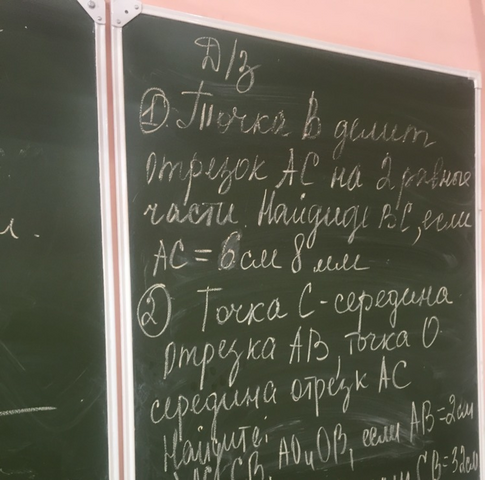 Д/з
① Точка В делит
отрезок АС на 2 равные
части. Найдиде ВС, если
АС = 6 см 8 мм
② Точка С - середина
отрезка АВ, точка О
середина отрезк АС
Найдите:
АС, СВ, АО и ОВ, если АВ = 2 см
СВ = 32 см